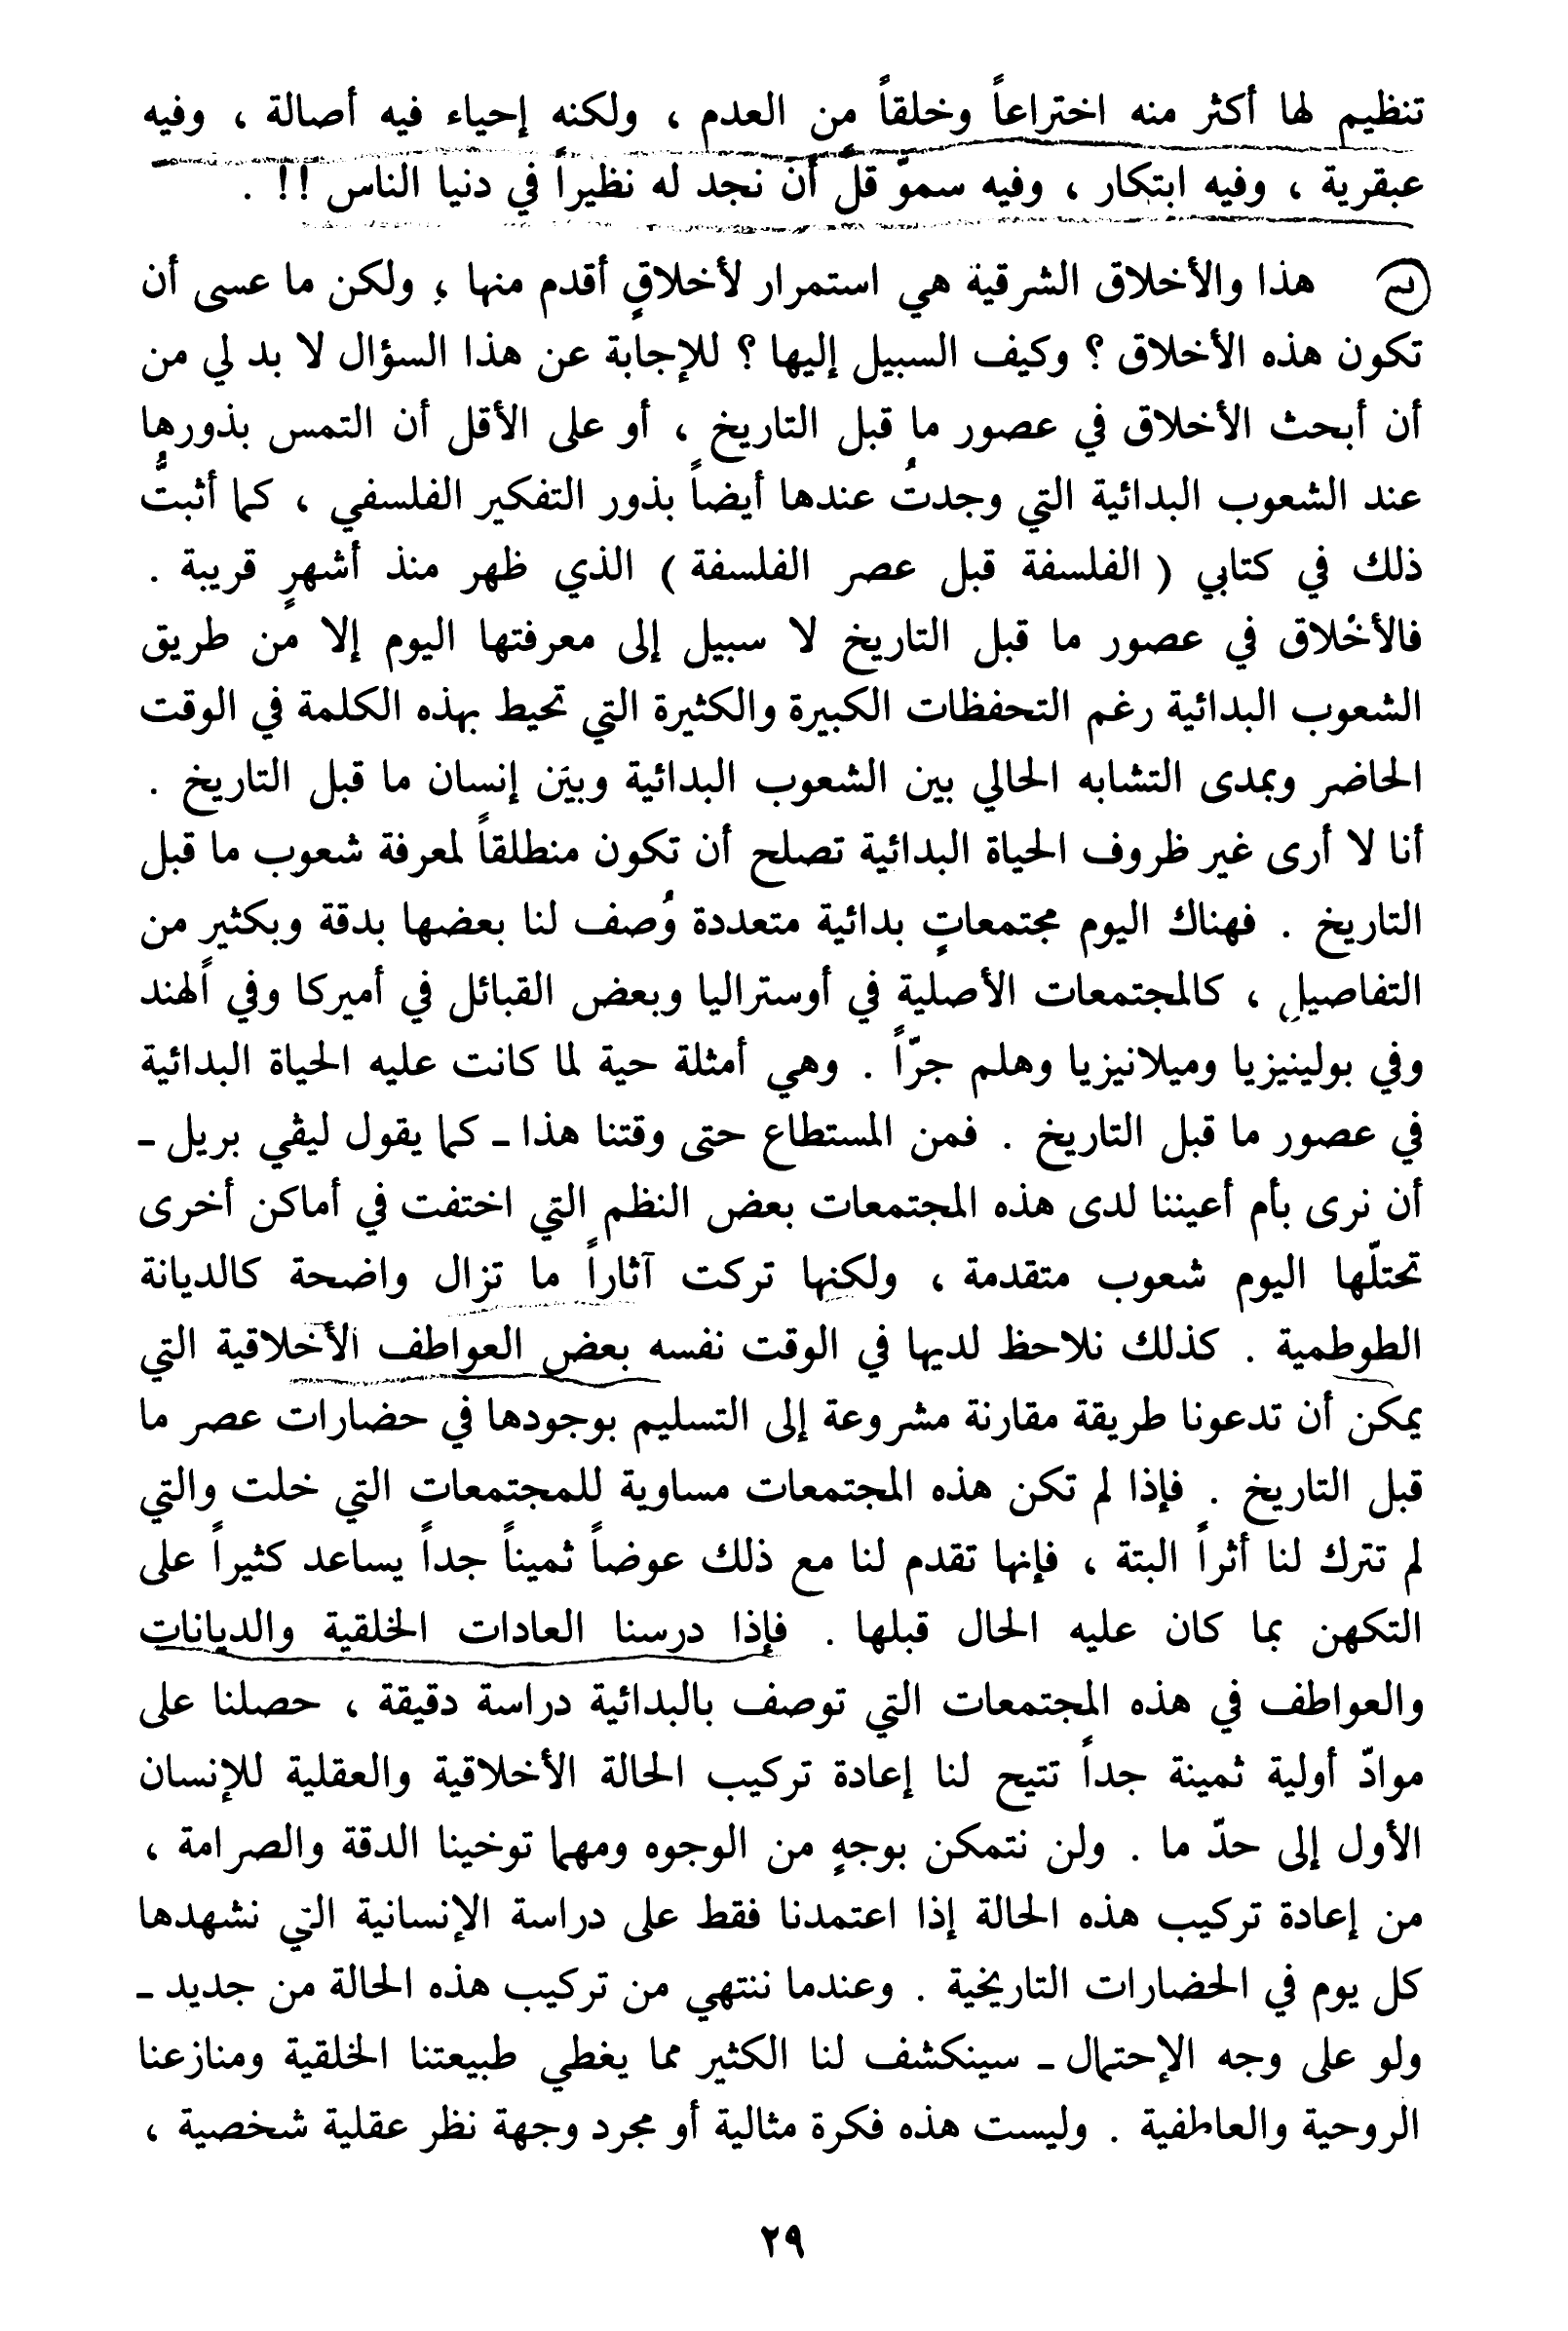 تنظيم لها أكثر منه اختراعاً وخلقاً من العدم ، ولكنه إحياء فيه أصالة ، وفيه
عبقرية ، وفيه ابتكار ، وفيه سموّ قلّ أن نجد له نظيراً في دنيا الناس !! .
هذا والأخلاق الشرقية هي استمرار لأخلاقٍ أقدم منها ، ولكن ما عسى أن
تكون هذه الأخلاق ؟ وكيف السبيل إليها ؟ للإجابة عن هذا السؤال لا بد لي من
أن أبحث الأخلاق في عصور ما قبل التاريخ ، أو على الأقل أن التمس بذورها
عند الشعوب البدائية التي وجدتُ عندها أيضاً بذور التفكير الفلسفي ، كما أثبتُّ
ذلك في كتابي ( الفلسفة قبل عصر الفلسفة ) الذي ظهر منذ أشهرٍ قريبة .
فالأخْلاق في عصور ما قبل التاريخ لا سبيل إلى معرفتها اليوم إلا من طريق
الشعوب البدائية رغم التحفظات الكبيرة والكثيرة التي تحيط بهذه الكلمة في الوقت
الحاضر وبمدى التشابه الحالي بين الشعوب البدائية وبيَن إنسان ما قبل التاريخ .
أنا لا أرى غير ظروف الحياة البدائية تصلح أن تكون منطلقاً لمعرفة شعوب ما قبل
التاريخ . فهناك اليوم مجتمعاتٍ بدائية متعددة وُصف لنا بعضها بدقة وبكثير من
التفاصيل ، كالمجتمعات الأصلية في أوستراليا وبعض القبائل في أميركا وفي الهند
وفي بولينيزيا وميلانيزيا وهلم جرّاً . وهي أمثلة حية لما كانت عليه الحياة البدائية
في عصور ما قبل التاريخ . فمن المستطاع حتى وقتنا هذا ـ كما يقول ليڤي بريل ـ
أن نرى بأم أعيننا لدى هذه المجتمعات بعض النظم التي اختفت في أماكن أخرى
تحتلّها اليوم شعوب متقدمة ، ولكنها تركت آثاراً ما تزال واضحة كالديانة
الطوطمية . كذلك نلاحظ لديها في الوقت نفسه بعض العواطف الأخلاقية التي
يمكن أن تدعونا طريقة مقارنة مشروعة إلى التسليم بوجودها في حضارات عصر ما
قبل التاريخ . فإذا لم تكن هذه المجتمعات مساوية للمجتمعات التي خلت والتي
لم تترك لنا أثراً البتة ، فإنها تقدم لنا مع ذلك عوضاً ثميناً جداً يساعد كثيراً على
التكهن بما كان عليه الحال قبلها . فإذا درسنا العادات الخلقية والديانات
والعواطف في هذه المجتمعات التي توصف بالبدائية دراسة دقيقة ، حصلنا على
موادّ أولية ثمينة جداً تتيح لنا إعادة تركيب الحالة الأخلاقية والعقلية للإنسان
الأول إلى حدّ ما . ولن نتمكن بوجهٍ من الوجوه ومهما توخينا الدقة والصرامة ،
من إعادة تركيب هذه الحالة إذا اعتمدنا فقط على دراسة الإنسانية التي نشهدها
كل يوم في الحضارات التاريخية . وعندما ننتهي من تركيب هذه الحالة من جديد ـ
ولو على وجه الإحتمال ـ سينكشف لنا الكثير مما يغطي طبيعتنا الخلقية ومنازعنا
الروحية والعاطفية . وليست هذه فكرة مثالية أو مجرد وجهة نظر عقلية شخصية ،
٢٩